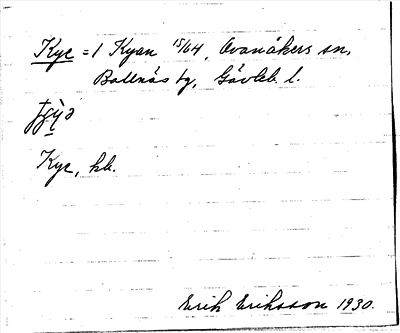 Kye = 1 Kyan 15/64, Ovanåkers sn,
Bollnäs tg, Gävleb. l.
Kye, hb.
Erik Eriksson 1930.